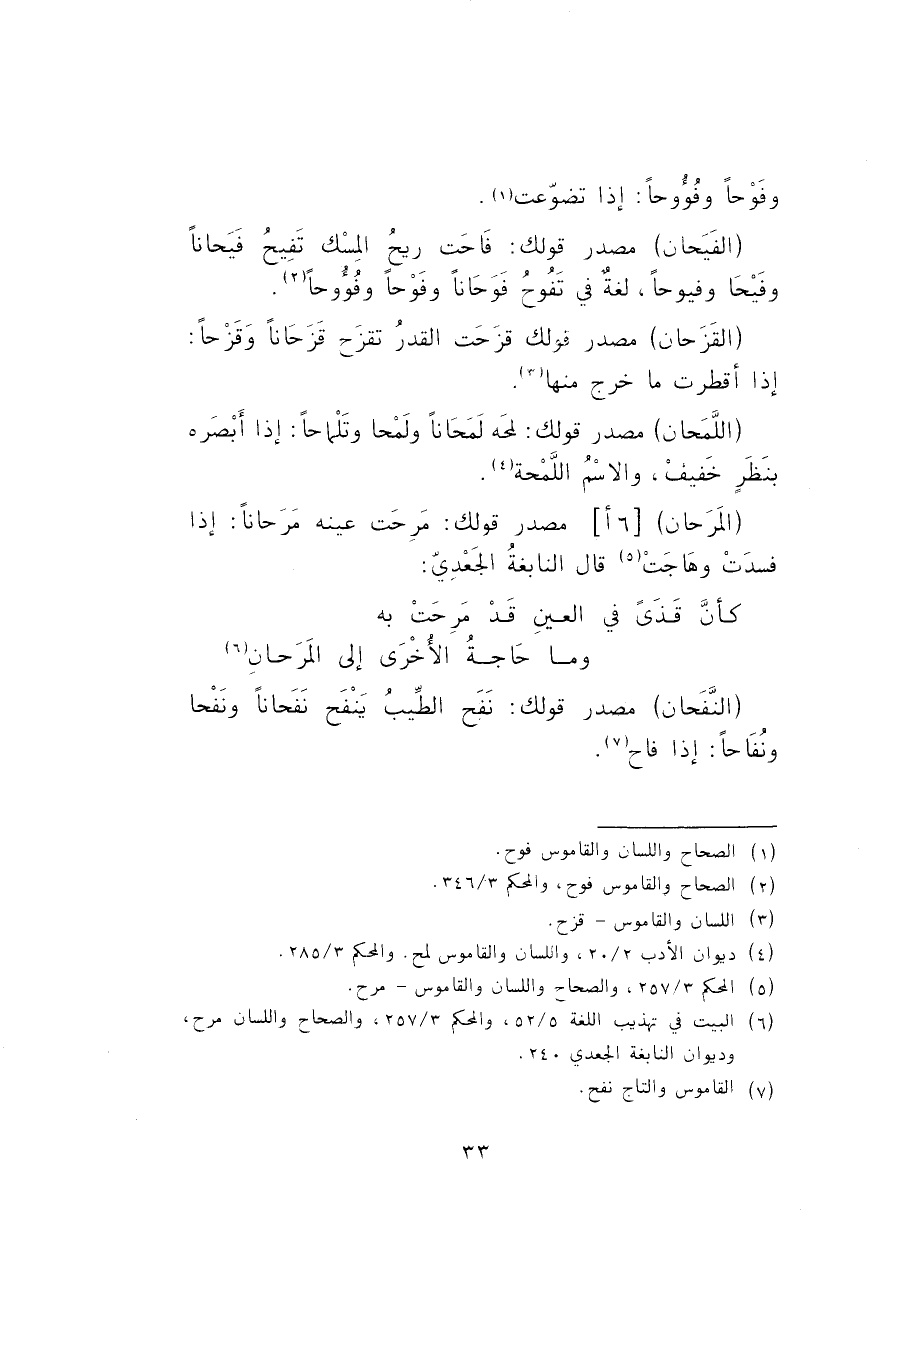 وفَوْحاً وفُؤُوحاً: إذا تضوّعت(١).
(الفَيَحان) مصدر قولك: فَاحَت ريحُ المِسْك تَفِيحُ فَيَحاناً
وفَيْحَا وفيوحاً، لغةٌ في تَفُوحُ فَوَحَاناً وفَوْحاً وفُؤُوحاً(٢).
(القَزَحان) مصدر قولك قزَحَت القدرُ تقزَح قَزَحَاناً وَقَزْحاً:
إذا أقطرت ما خرج منها(٣).
(اللَّمَحان) مصدر قولك: لمحَه لَمَحَاناً ولَمْحا وتَلْماحاً: إذا أَبْصَره
بنَظَرٍ خَفيفْ، والاسْمُ اللَّمْحة(٤).
(المَرَحان) [٦أ] مصدر قولك: مَرِحَت عينه مَرَحاناً: إذا
فسدَتْ وهَاجَتْ(٥) قال النابغةُ الجَعْدِيّ:
كأنَّ قَذَىً في العينِ قَدْ مَرِحَتْ به
وما حَاجةُ الأُخْرَى إلى المَرَحانِ(٦)
(النَّفَحان) مصدر قولك: نَفَح الطِّيبُ يَنْفَح نَفَحاناً ونَفْحا
ونُفَاحاً: إذا فاح(٧).
(١) الصحاح واللسان والقاموس فوح.
(٢) الصحاح والقاموس فوح، والمحكم ٣٤٦/٣.
(٣) اللسان والقاموس – قزح.
(٤) ديوان الأدب ٢٠/٢، واللسان والقاموس لمح. والمحكم ٢٨٥/٣.
(٥) المحكم ٢٥٧/٣، والصحاح واللسان والقاموس – مرح.
(٦) البيت في تهذيب اللغة ٥٢/٥، والمحكم ٢٥٧/٣، والصحاح واللسان مرح،
وديوان النابغة الجعدي ٢٤٠.
(٧) القاموس والتاج نفح.
٣٣